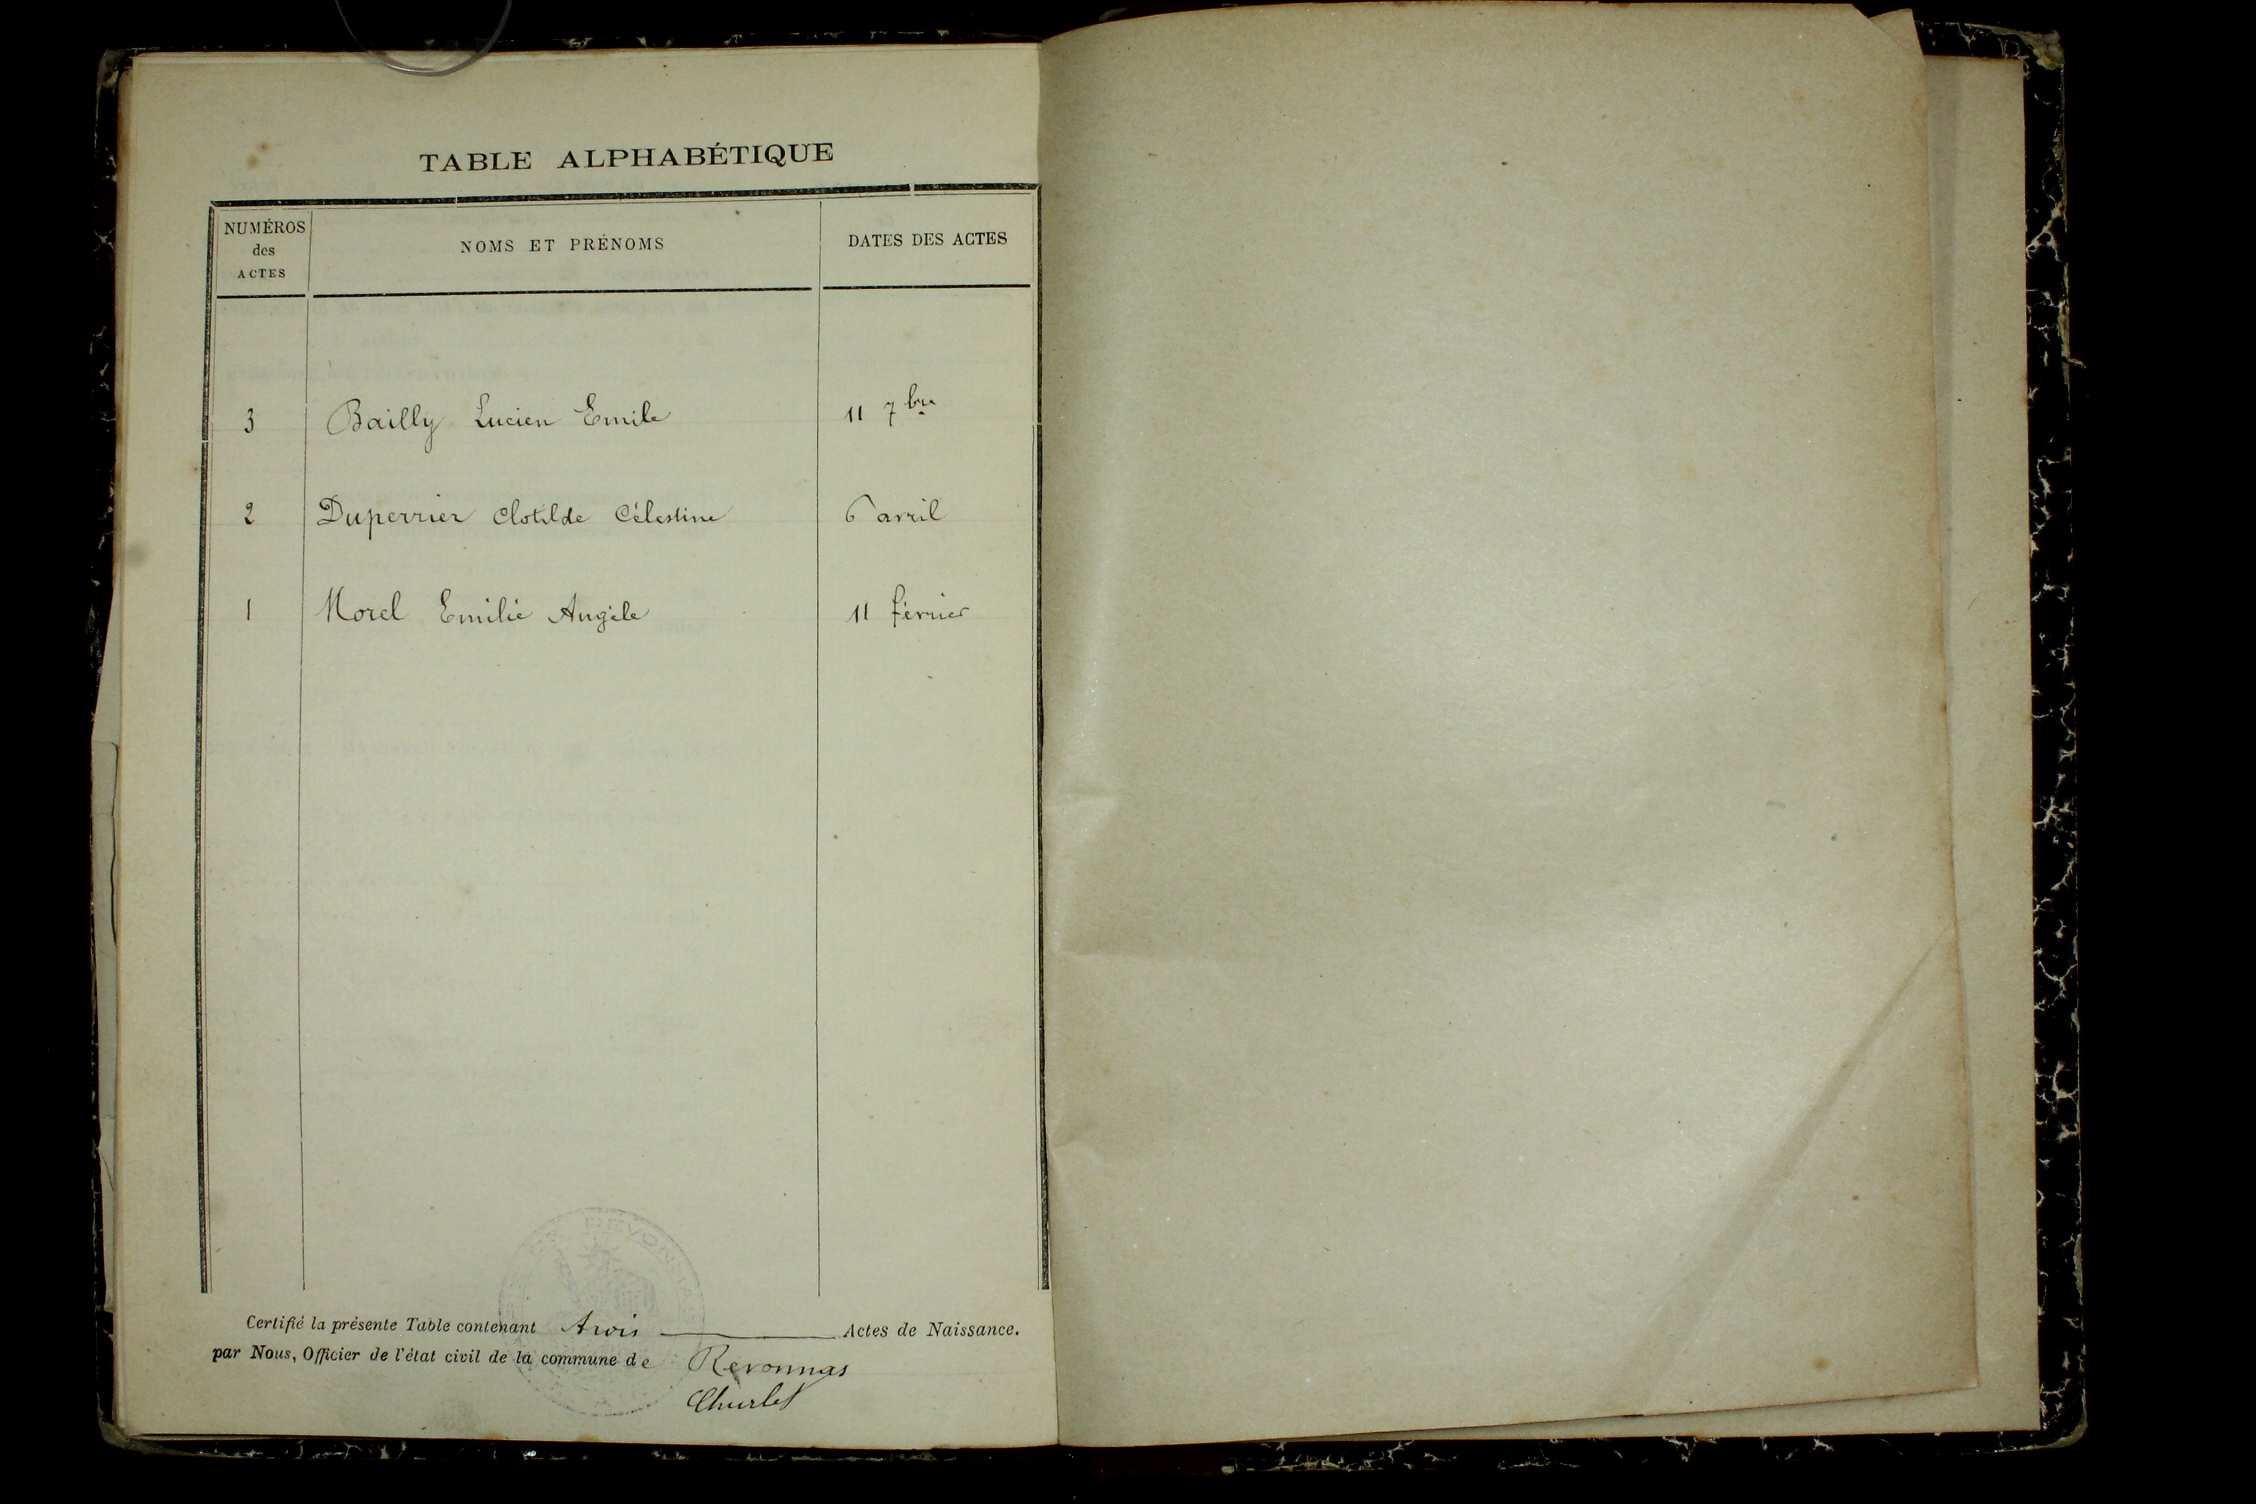 TABLE ALPHABÉTIQUE
NUMÉROS des ACTES
NOMS ET PRÉNOMS
DATES DES ACTES
3 Bailly Lucien Emile 11 7bre
2 Duperrier Clotilde Célestine 6 avril
1 Morel Emilie Angèle 11 février
REVONNAS
Certifié la présente Table contenant trois Actes de Naissance.
par Nous, Officier de l'état civil de la commune de Revonnas